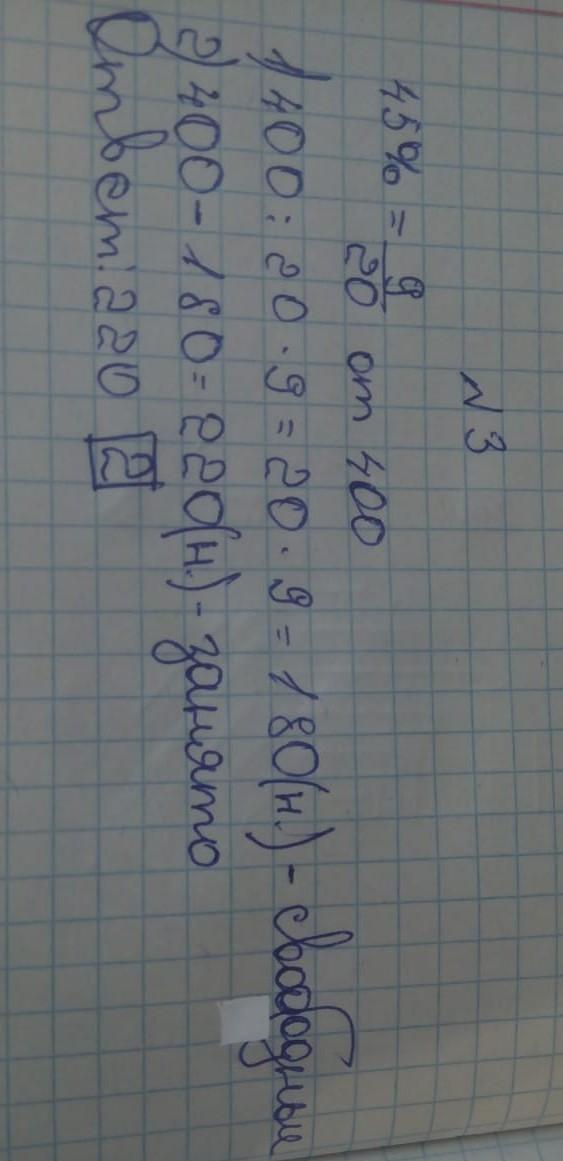 №3
45% = 9/20 от 400
1) 400 : 20 · 9 = 20 · 9 = 180 (н.) - свободные
2) 400 - 180 = 220 (н.) - занято
Ответ: 220 2